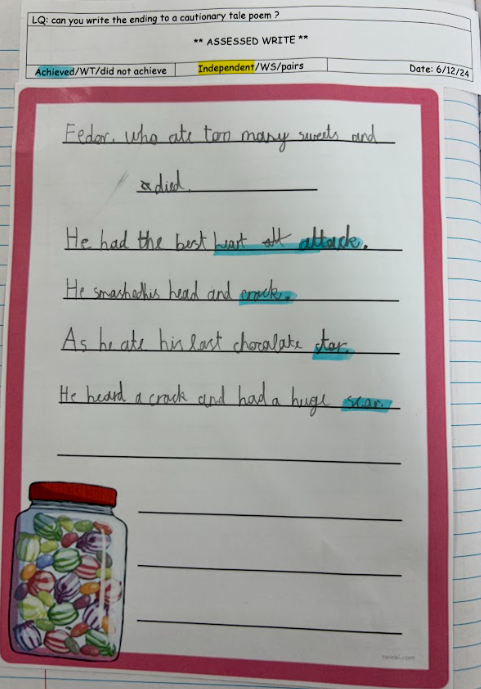 LQ: can you write the ending to a cautionary tale poem ?
** ASSESSED WRITE **
Achieved/WT/did not achieve Independent/WS/pairs Date: 6/12/24
Fedor, who ate too many sweets and
died.
He had the best heart attack.
He smashed his head and crack.
As he ate his last chocolate star.
He heard a crack and had a huge scar.
twinkl.com